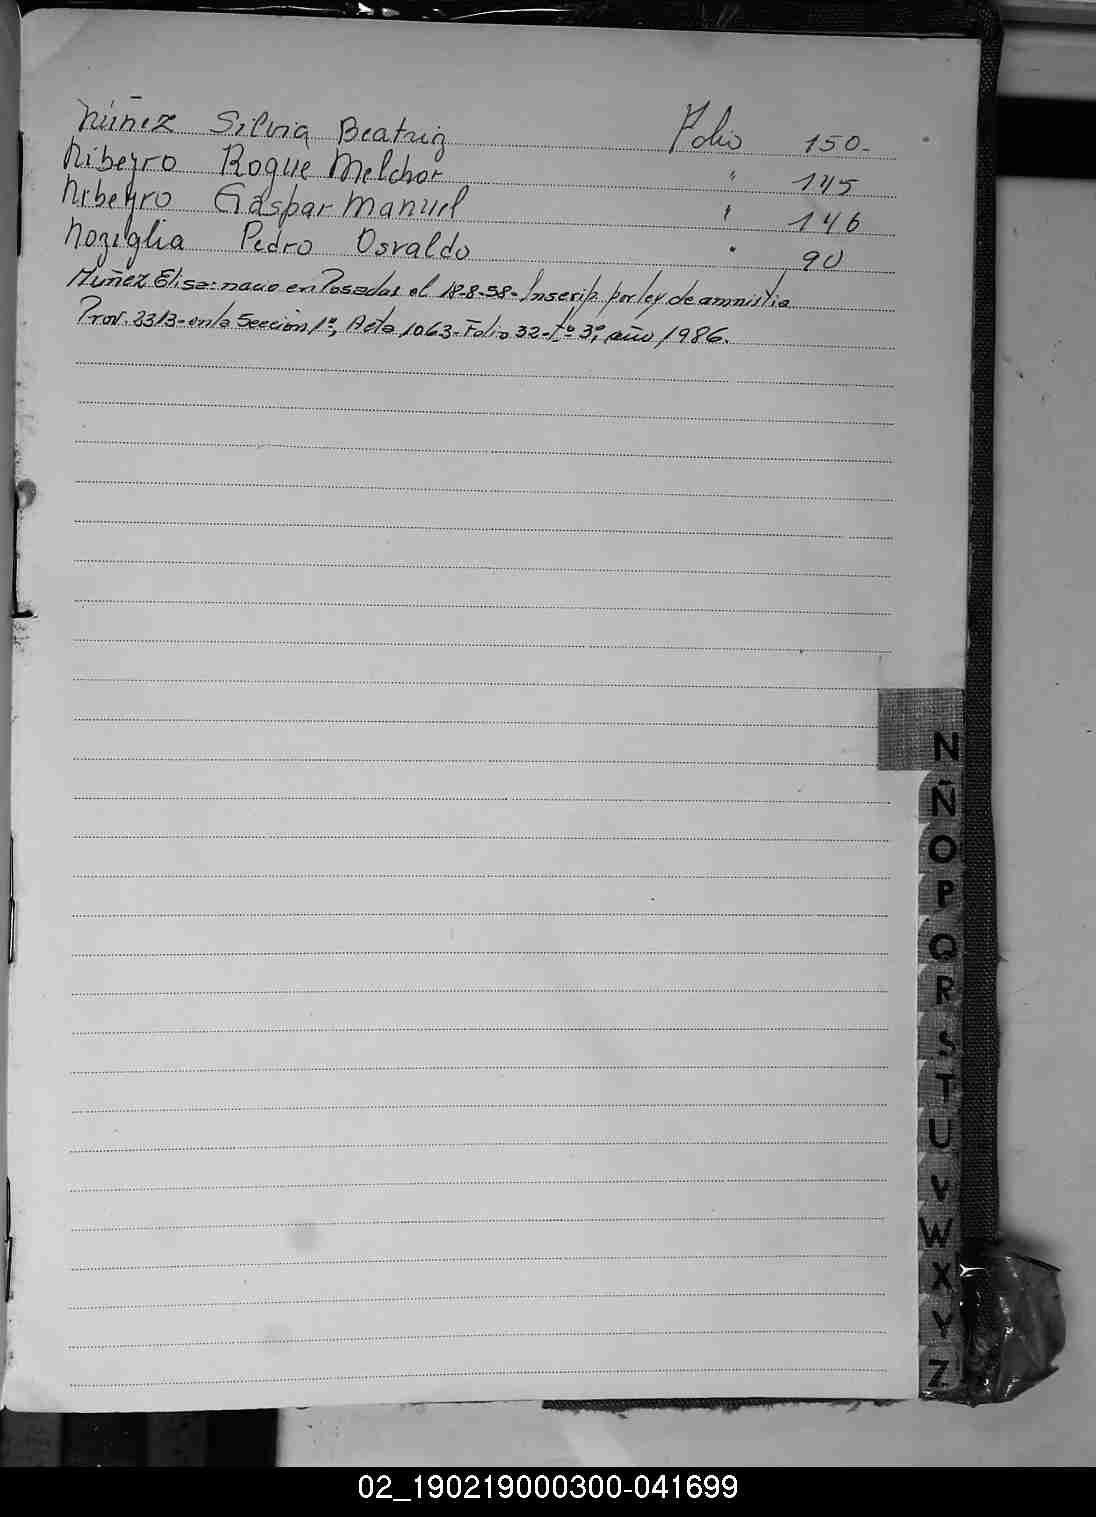 Núñez Silvia Beatriz Folio 150-
Nibeyro Roque Melchor " 145
Nibeyro Gaspar Manuel " 146
Noziglia Pedro Osvaldo " 90
Nuñez Elisa: nacio en Posadas el 18-8-58- Inscrip. por ley de amnistia
Prov. 2313- en la Sección 1ª, Acta 1063- Folio 32- tº 3º, año 1986.
N
Ñ
O
P
Q
R
S
T
U
V
W
X
Y
Z
02_190219000300-041699